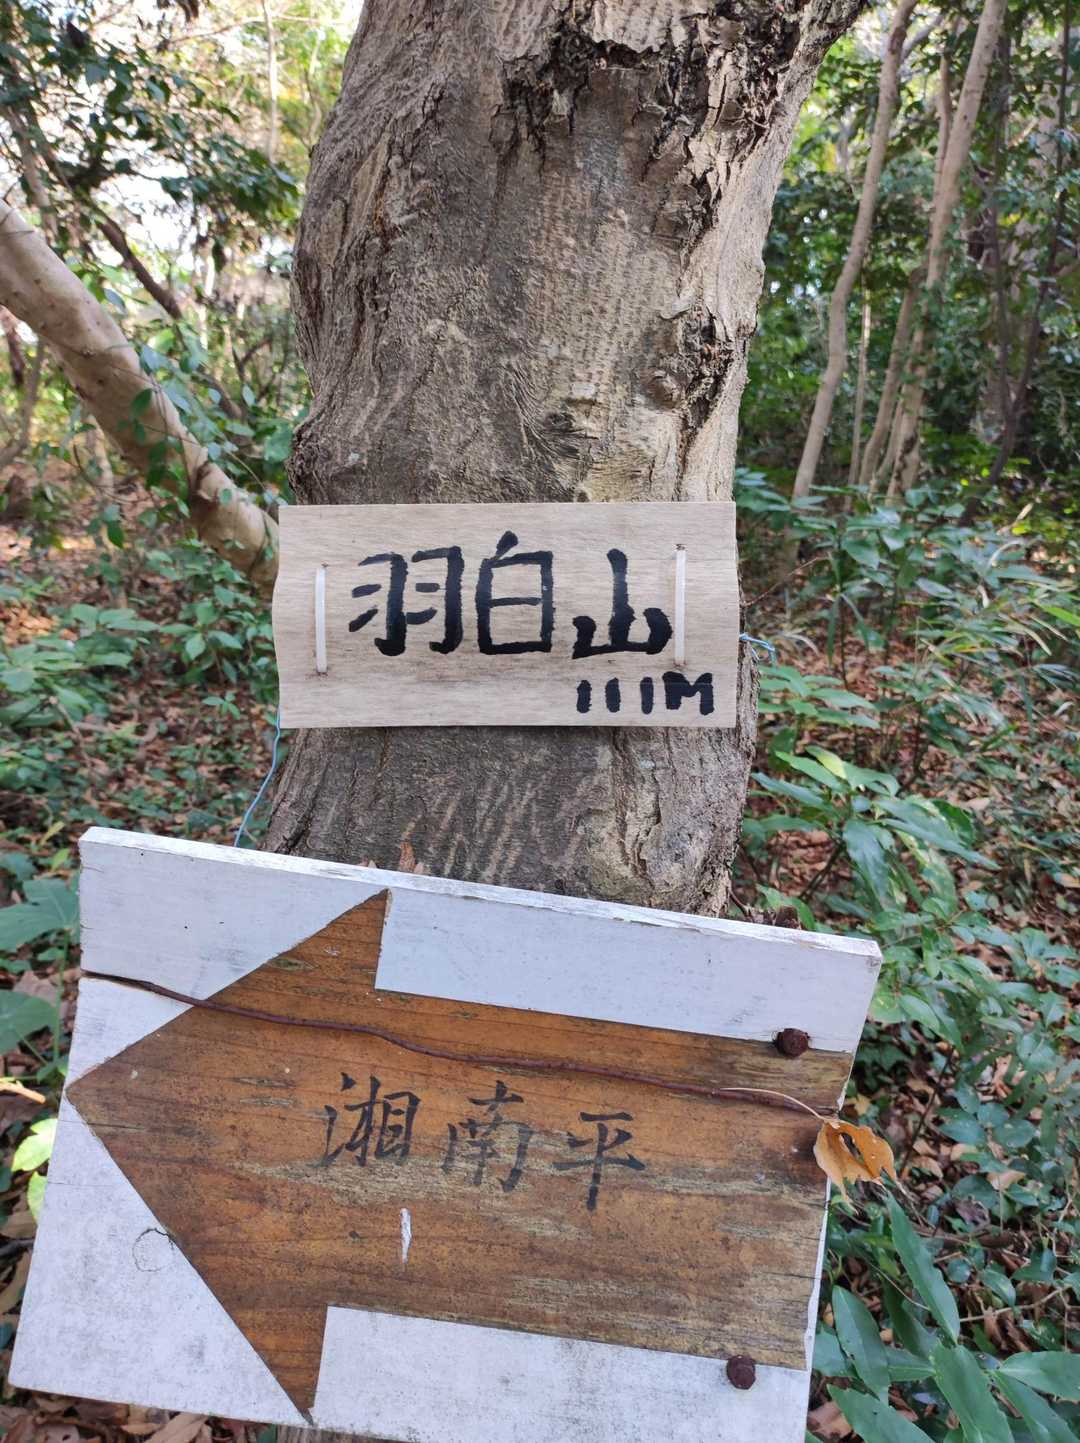 羽白山
111M
湘南平